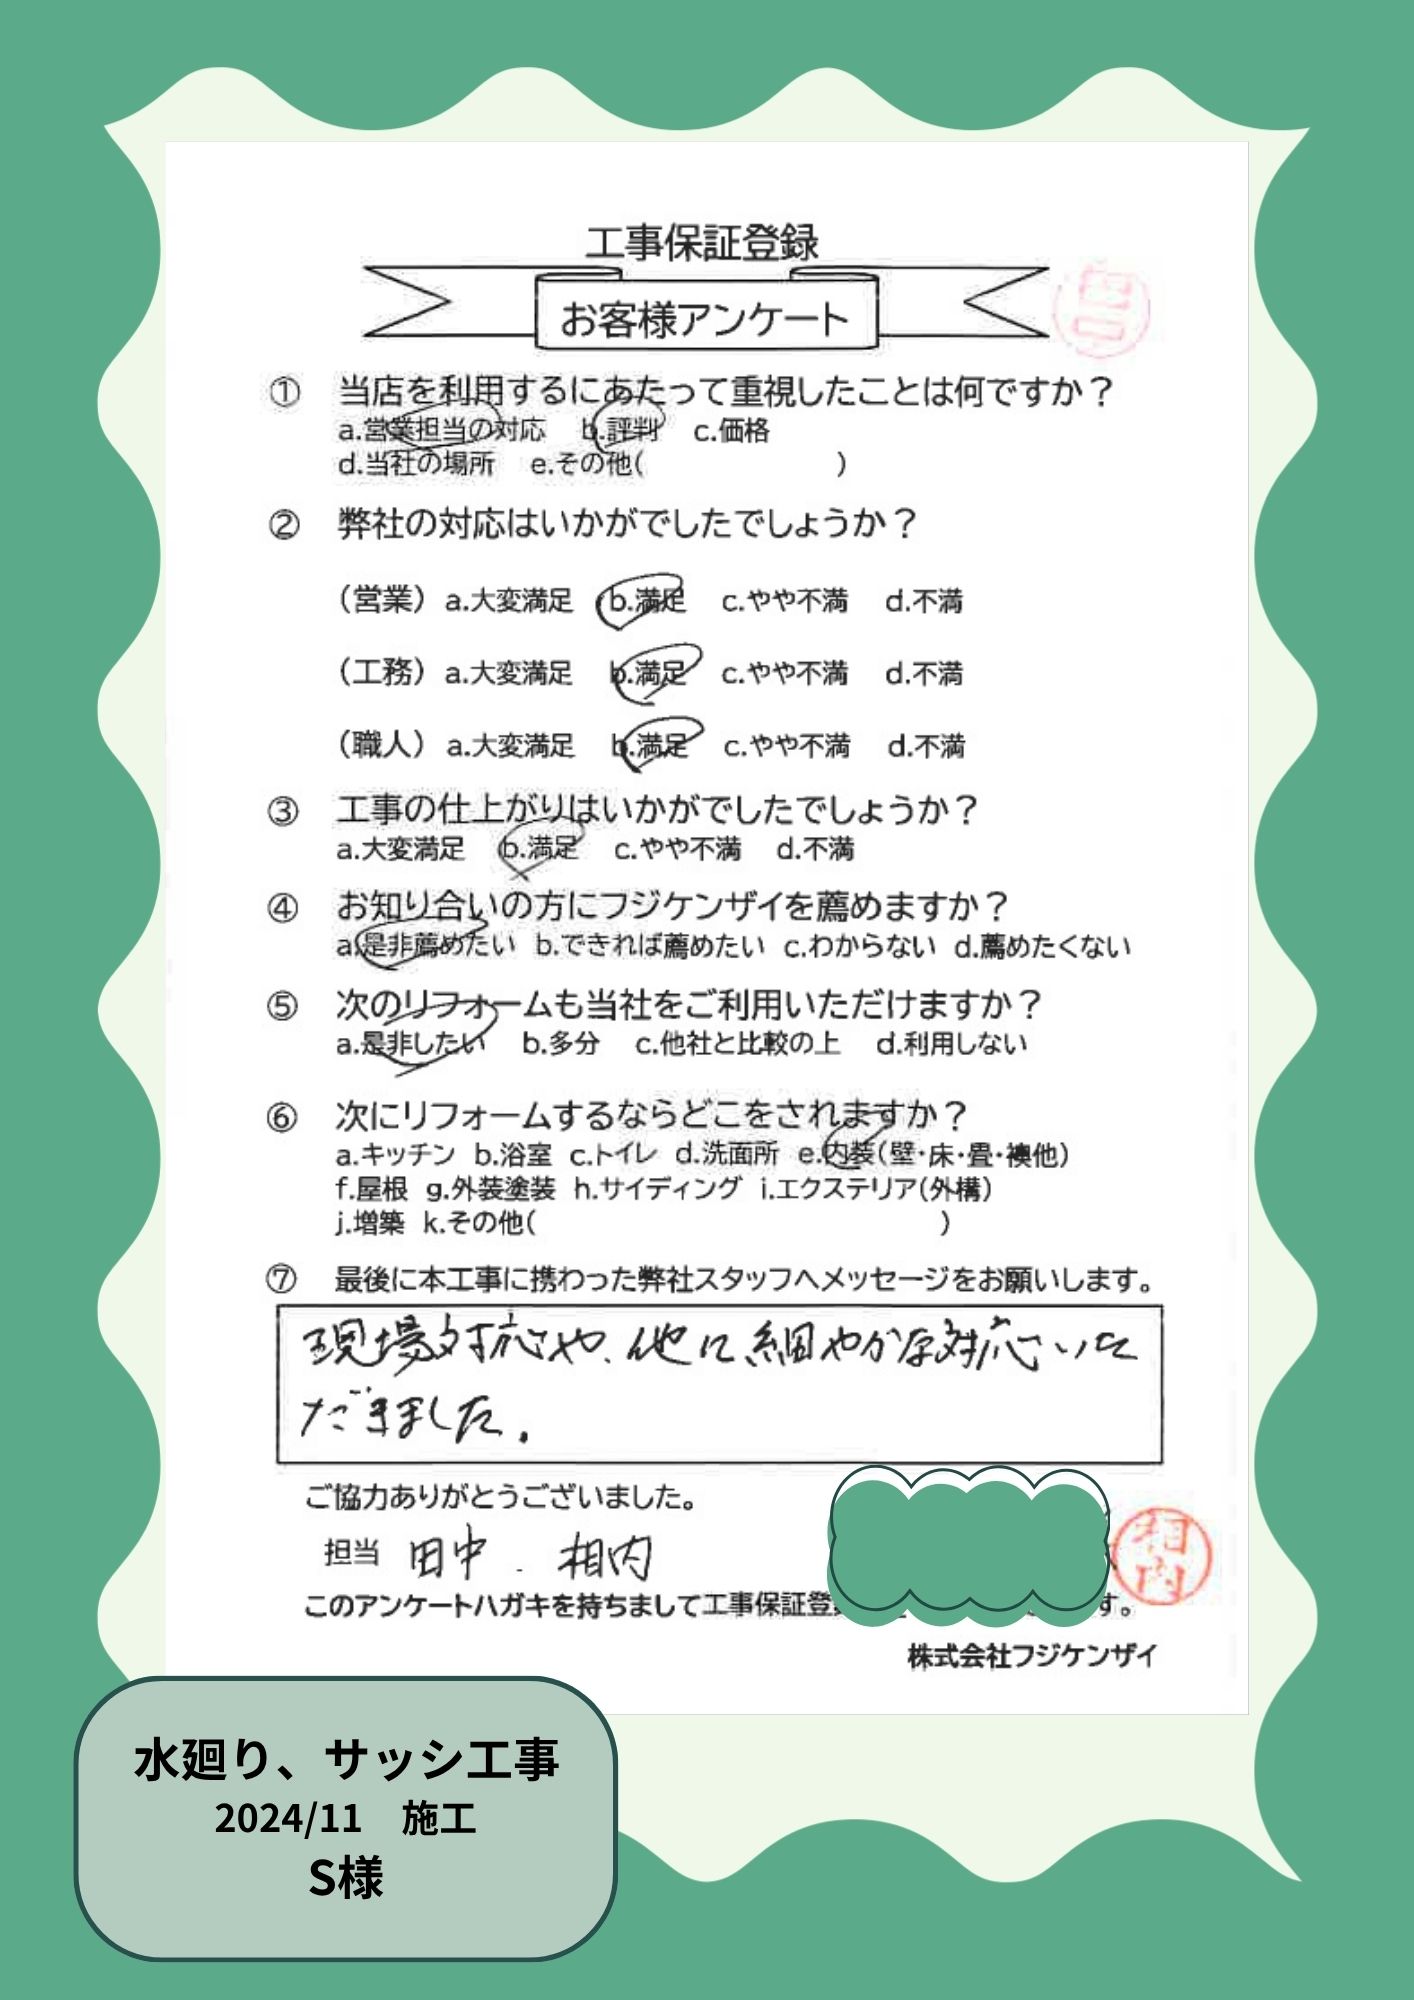 工事保証登録
お客様アンケート
① 当店を利用するにあたって重視したことは何ですか？
a.営業担当の対応 b.評判 c.価格
d.当社の場所 e.その他( )
② 弊社の対応はいかがでしたでしょうか？
（営業）a.大変満足 b.満足 c.やや不満 d.不満
（工務）a.大変満足 b.満足 c.やや不満 d.不満
（職人）a.大変満足 b.満足 c.やや不満 d.不満
③ 工事の仕上がりはいかがでしたでしょうか？
a.大変満足 b.満足 c.やや不満 d.不満
④ お知り合いの方にフジケンザイを薦めますか？
a.是非薦めたい b.できれば薦めたい c.わからない d.薦めたくない
⑤ 次のリフォームも当社をご利用いただけますか？
a.是非したい b.多分 c.他社と比較の上 d.利用しない
⑥ 次にリフォームするならどこをされますか？
a.キッチン b.浴室 c.トイレ d.洗面所 e.内装(壁・床・畳・襖他)
f.屋根 g.外装塗装 h.サイディング i.エクステリア(外構)
j.増築 k.その他( )
⑦ 最後に本工事に携わった弊社スタッフへメッセージをお願いします。
現場対応や、他に細やかな対応いた
だきました.
ご協力ありがとうございました。
担当 田中 . 相内
相内
このアンケートハガキを持ちまして工事保証登 す。
株式会社フジケンザイ
水廻り、サッシ工事
2024/11 施工
S様